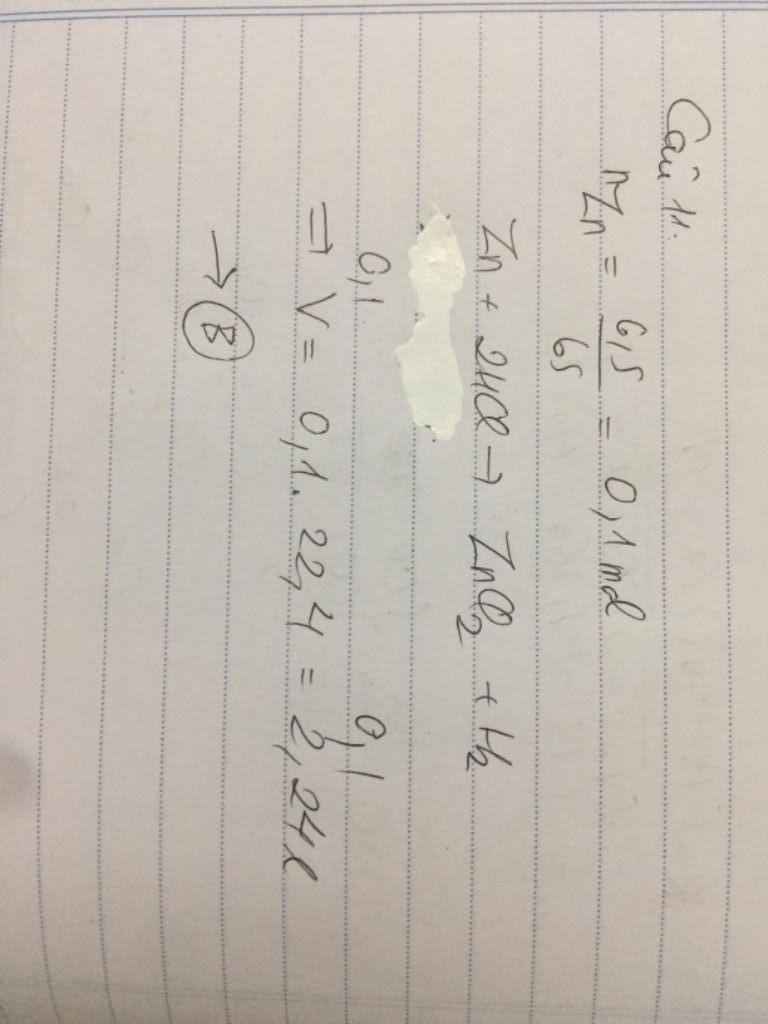 Câu 11.
nZn = 6,5/65 = 0,1 mol
Zn + 2HCl → ZnCl2 + H2
0,1 0,1
⇒ V = 0,1. 22,4 = 2,24l
→ B